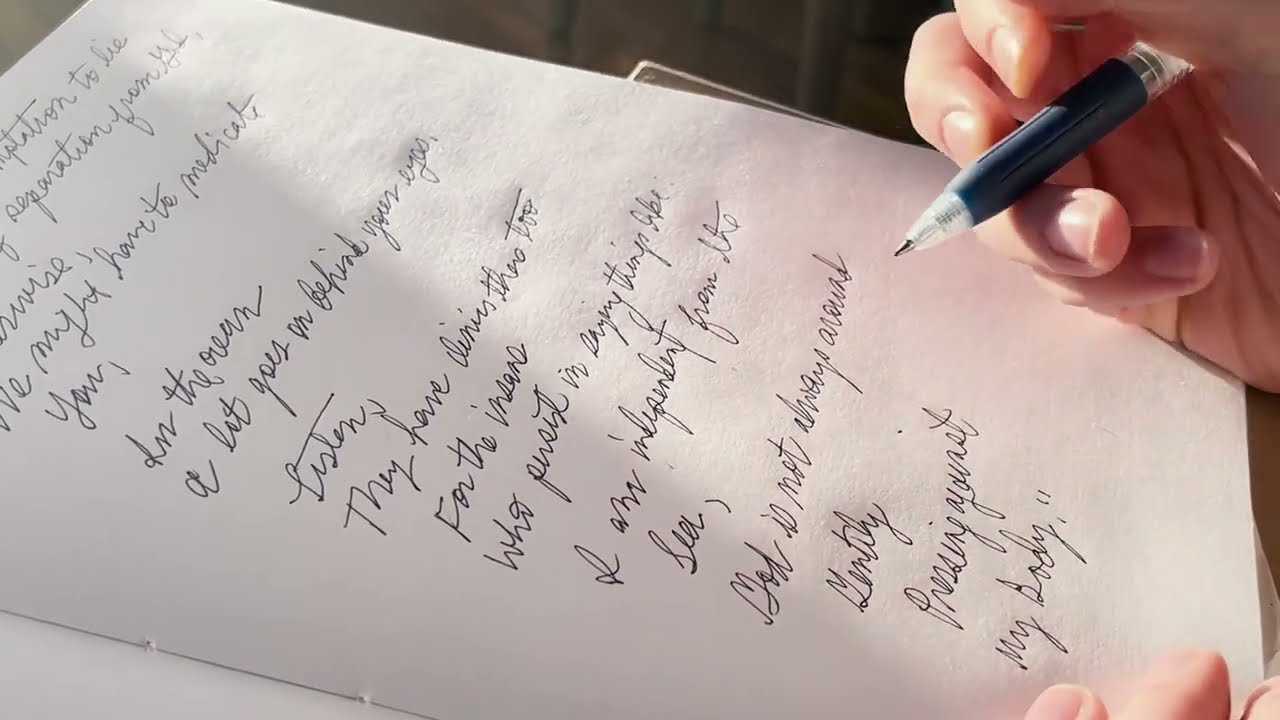 mptation to lie
f separation from God,
erwise,
We might have to medicate
You,
In the ocean
a lot goes on behind your eyes.
Listen,
They have clinics there too
For the insane
Who persist in saying things like:
I am independent from the
Sea,
God is not always around
Gently
Pressing against
my Body."